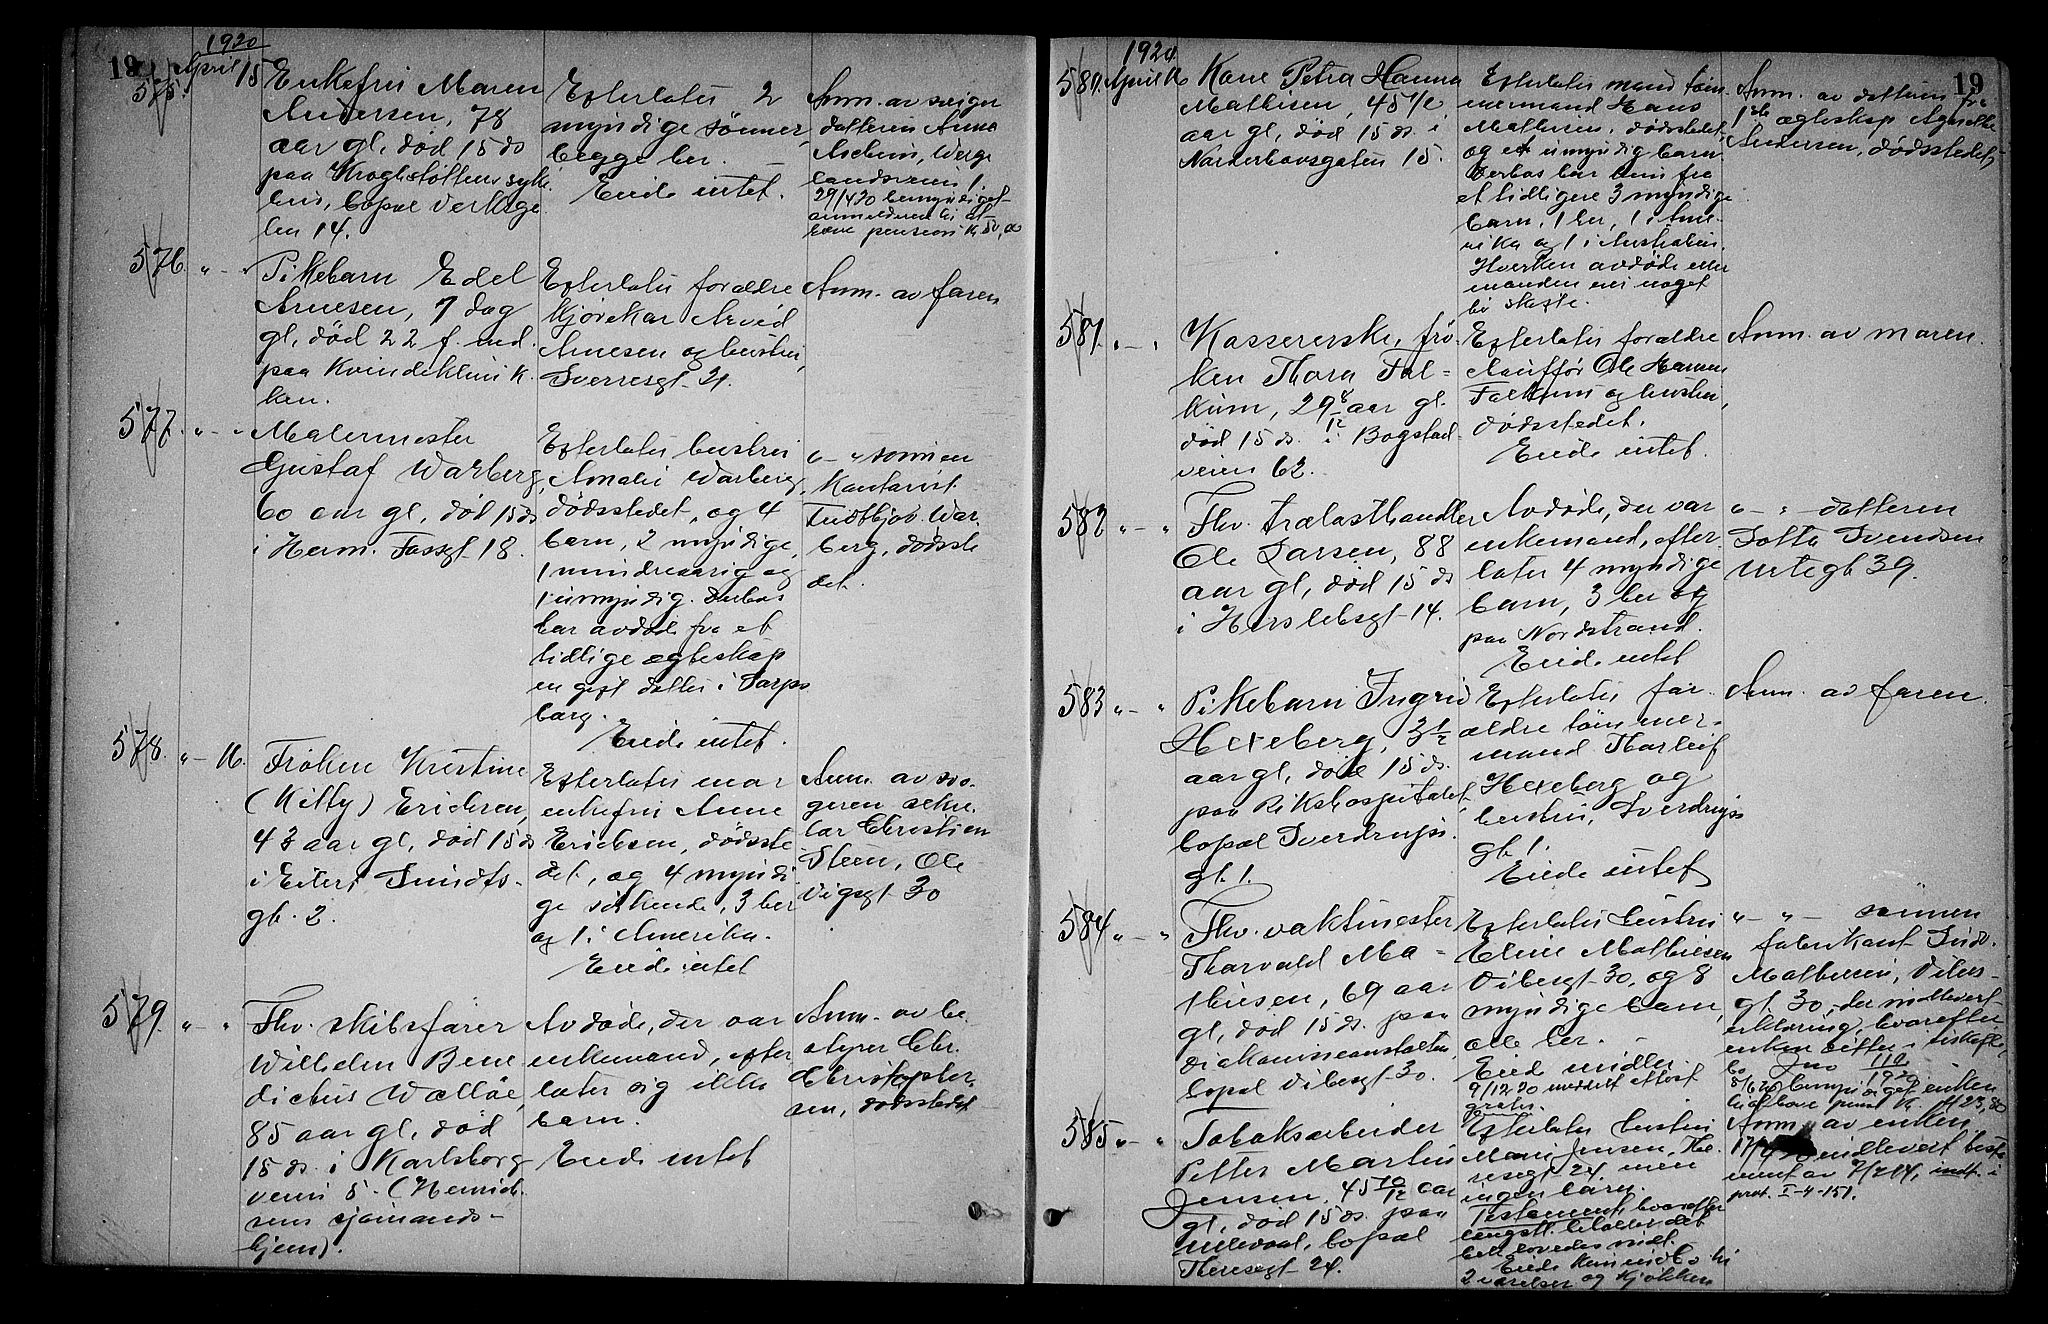 19
1920
575. April 15
Enkefru Maren
Andersen, 78
aar gl, død 15 ds
paa Krogstøttens syke
hus, bopæl Verksga
ten 14.
Efterlater 2
myndige sønner,
begge her. —
Eiede intet.
Anm. av sviger
datteren Anna
landsveien 1.
29/4 20 bemyndiget
anmelderen til at
heve pension Kr
576. " - "
Pikebarn Edel
Arnesen, 7 dag
gl, død 22 f. md.
paa Kvindeklinik
ken.
Efterlater forældre
kjørekar Arvid
Arnesen og hustru,
Sverresgt 21.
Anm. av faren
577. " - "
Malermester
Gustaf Warberg,
60 aar gl, død 15 ds
i Herm. Fossgt 18.
Efterlater hustru
Amalie Warberg,
dødsstedet, og 4
barn, 2 myndige,
1 mindreaarig og
1 umyndig. Desuten
har avdøde fra et
tidlige ægteskap
en gift datter i Sarps
borg.
Eiede intet.
" - " sønnen
Kontorist
Fridtjov War
berg, dødsste
det.
578. " - 16.
Frøken Kristine
(Kitty) Ericksen,
43 aar gl, død 15 ds
i Eilert Sundts-
gt. 2.
Efterlater mor
enkefru Anne
Ericksen, dødsste
det, og 4 myndi
ge søskende, 3 her
og 1 i Amerika.
Eiede intet
Anm. av svo-
geren sekre
tær Christian
Steen, Ole
Vigsgt 30
579. " - "
Fhv. skibsfører
Wilhelm Bene
dictus Walløe,
85 aar gl, død
15 ds. i Karlsborg
veien 5. (Henrik
sens sjømands-
hjem).
Avdøde, der var
enkemand, efter
later sig ikke
barn.
Eiede intet
Anm. av be
styrer Chr.
Christopher
sen, dødsstedet
19
1920
580. April 16
Kone Petra Hanna
Mathisen, 45 1/2
aar gl, død 15 ds. i
Norderhovsgaten 15.
Efterlater mand tøm
mermand Hans
Mathisen, dødsstedet
og et umyndig barn.
Desuten har hun fra
et tidligere 3 myndige
barn, 1 her, 1 i Ame-
rika og 1 i Australien.
Hverken avdøde eller
manden eier noget
til skifte.
Anm. av datteren fra
1ste ægteskap
Andersen, dødsstedet,
581. " - "
Kassererske, frø-
ken Thora Fal-
kum, 29 8/12 aar gl.
død 15 ds. i Bogstad
veien 62.
Efterlater forældre
chauffør Ole Hansen
Falkum og hustru,
dødsstedet.
Eiede intet.
Anm. av moren.
582 " - "
Fhv. trælasthandler
Ole Larsen, 88
aar gl, død 15 ds
i Herslebsgt 14.
Avdøde, der var
enkemand, efter
later 4 myndige
barn, 3 her og
paa Nordstrand.
Eiede intet
" - " - datteren
Lotta Svendsen
Urtegt 39.
583 " - "
Pikebarn Ingrid
Hexeberg, 3 1/2
aar gl, død 15 ds.
paa Rikshospitalet,
bopæl Sverdrups
gt. 1.
Efterlater for
ældre tømmer-
mand Thorleif
Hexeberg og
hustru, Sverdrups
gt. 1.
Eiede intet
Anm. av faren.
584 " - "
Fhv. vaktmester
Thorvald Ma-
thiesen, 69 aar
gl, død 15 ds. paa
diakonisseanstalten,
bopæl Vibesgt 30.
Efterlater hustru
Eline Mathiesen
Vibesgt 30, og 8
myndige barn,
alle her.
Eiede midler.
9/12 20 meddelt attest
gratis.
" - " - sønnen
fabrikant
Mathiesen, Vibes-
gt. 30, der indlevert
erklæring, hvorefter
enken sitter i uskiftet
bo Jno 110/1920
8/6 20 bemyndiget enken
til at heve pens. Kr 423,80
585 " - "
Tobaksarbeider
Petter Martin
Jensen, 45 10/12 aar
gl, død 15 ds. paa
Ullevaal, bopæl
Theresegt 24.
Efterlater hustru
Marie Jensen, The
resegt 24. men
ingen barn.
Testament, hvorefter
længstl. beholder det
hele
Eiede kun indbo til
2 værelser og kjøkken
Anm. av enken.
indlevert testa
ment av 7/2 14, indt. i
prot. I-4-151.